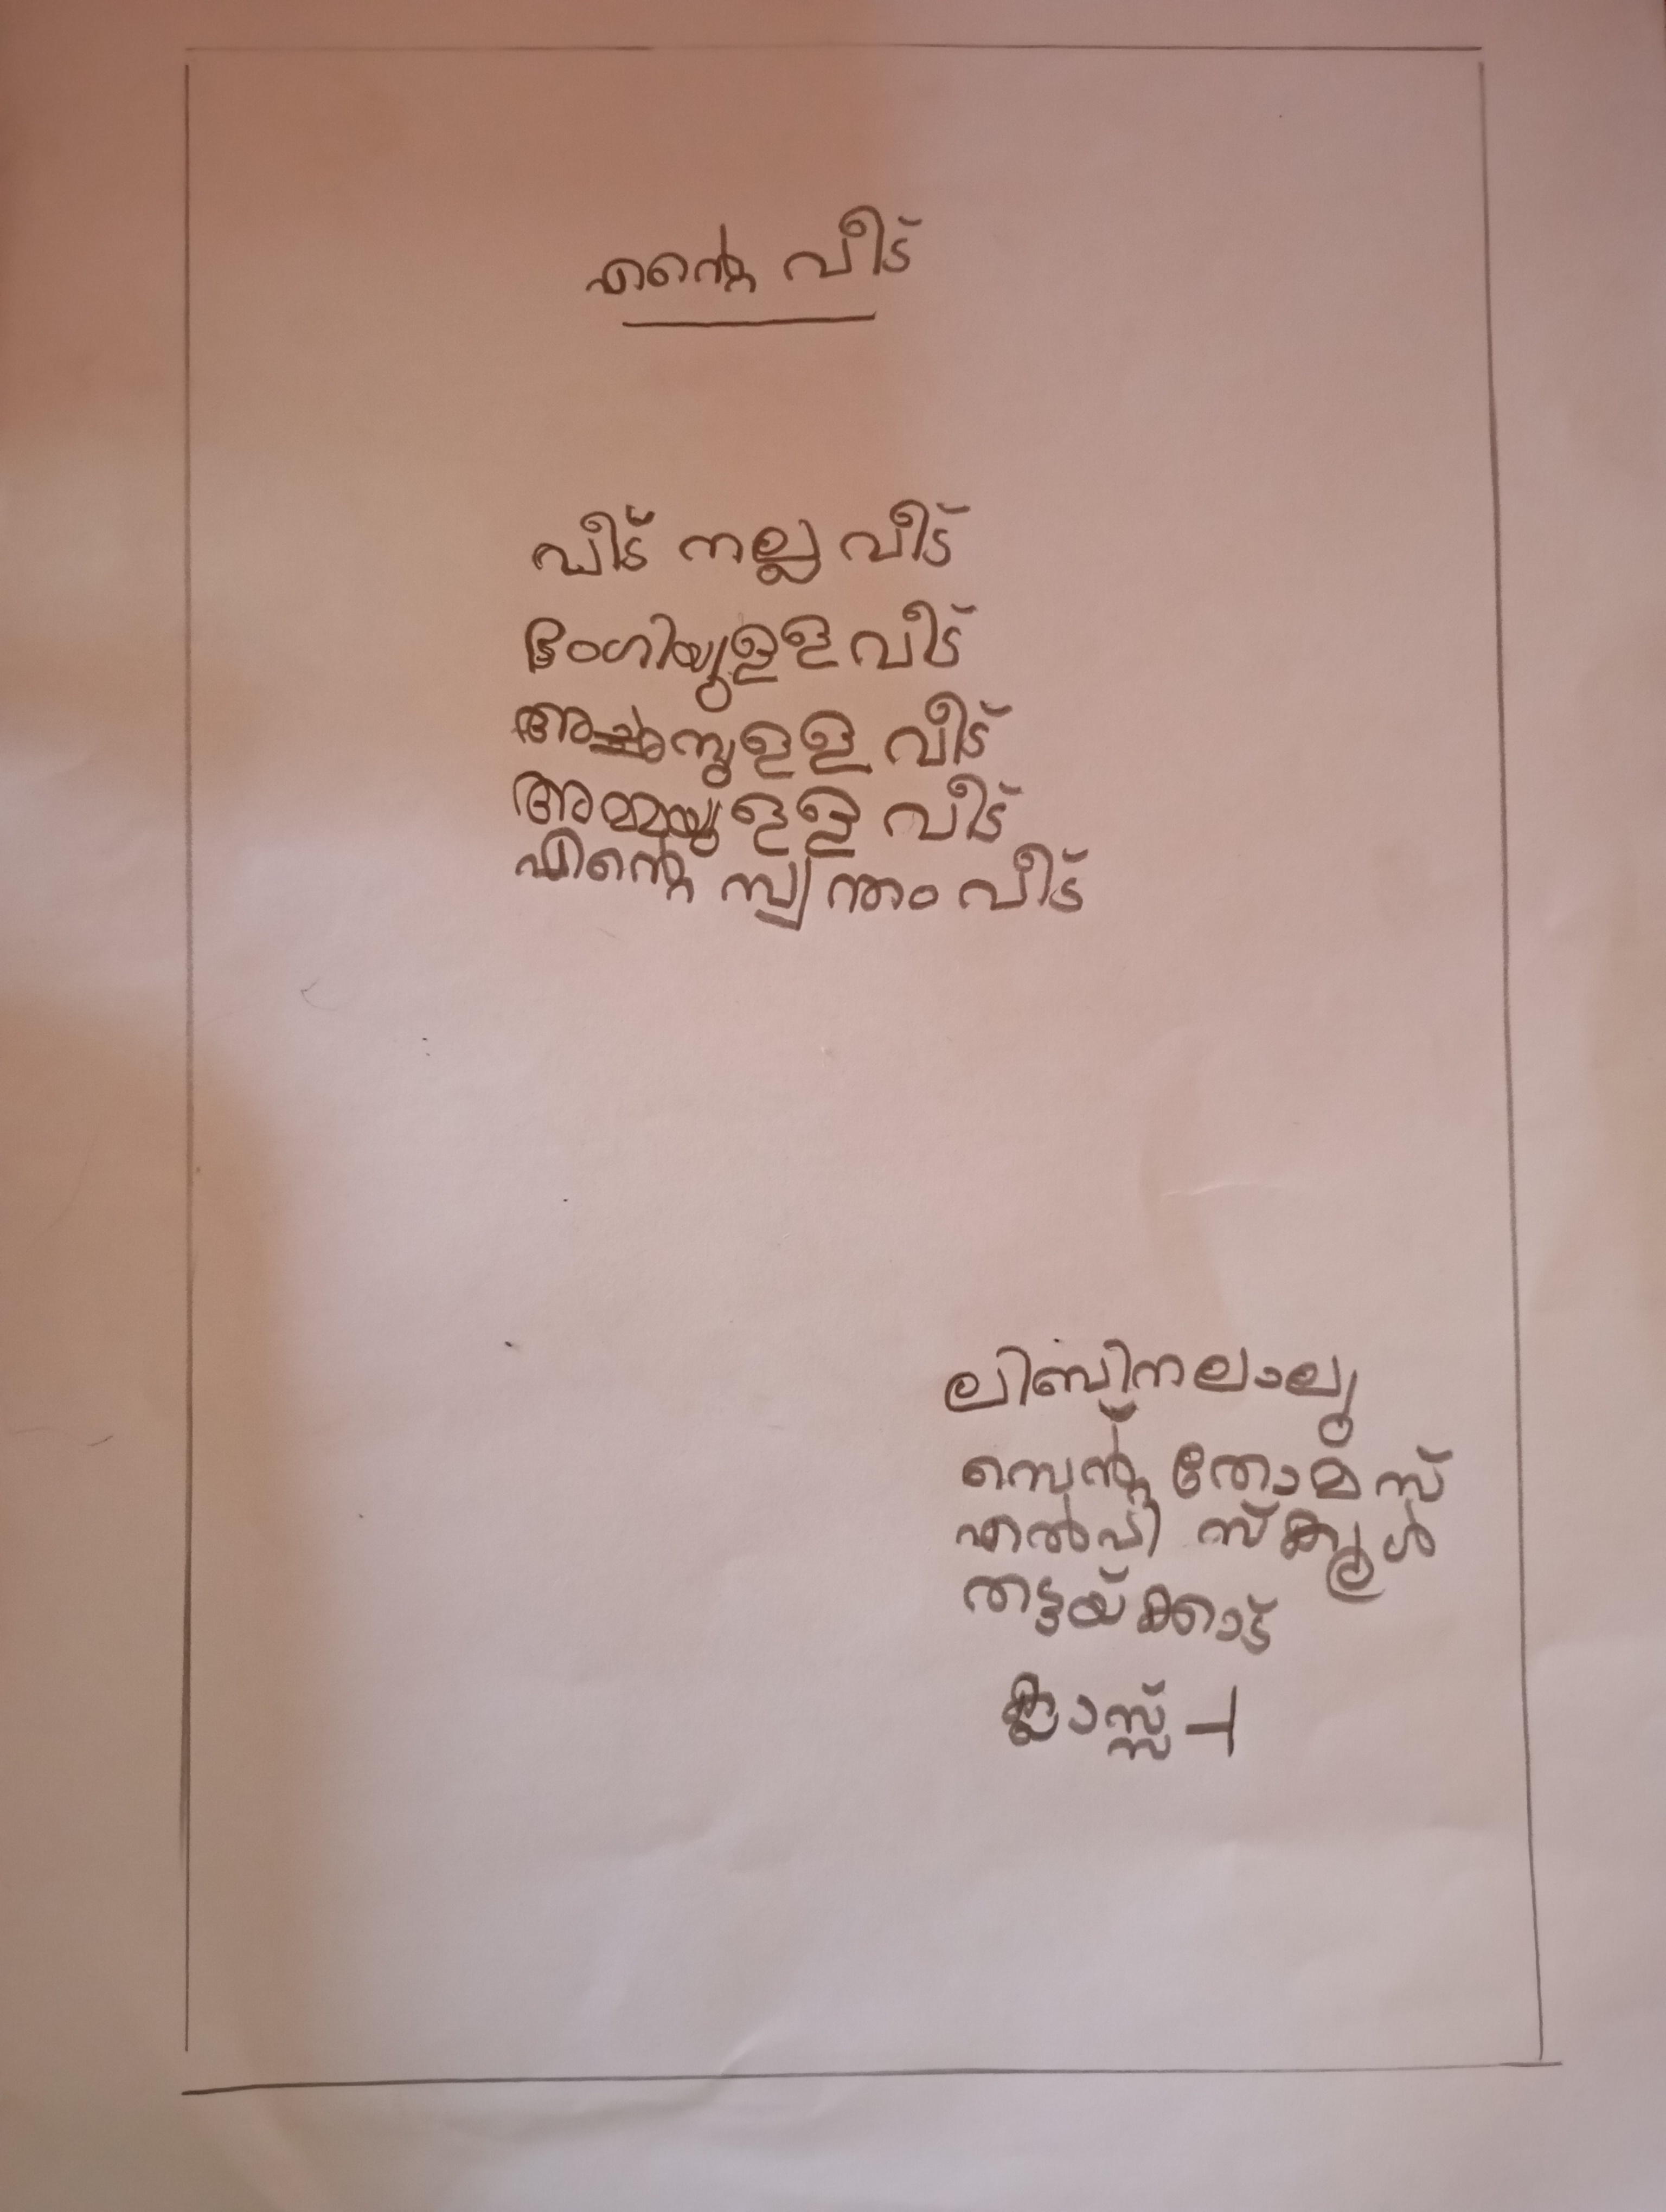 എന്റെ വീട്
വീട് നല്ല വീട്
ഭംഗിയുള്ള വീട്
അച്ഛനുള്ള വീട്
അമ്മയുള്ള വീട്
എന്റെ സ്വന്തം വീട്
ലിബിന ലാലു
സെന്റ് തോമസ്
എൽപി സ്കൂൾ
തട്ടയ്ക്കാട്
ക്ലാസ്സ് -1